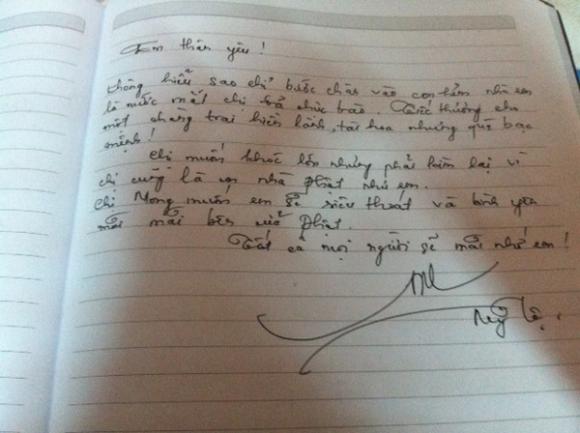 Em thân yêu!
không hiểu sao chỉ bước chân vào cổng nhà em
là nước mắt chị trào. Tiếc thương cho
một chàng trai hiền lành, tài hoa nhưng quá bạc
mệnh!
Chị muốn khóc lớn nhưng phải kìm lại vì
chị cũng là con nhà Phật như em.
Chị Mong muốn em sẽ siêu thoát và bình yên
mãi mãi bên Phật.
Tất cả mọi người sẽ mãi nhớ em!
Mỹ Lệ.